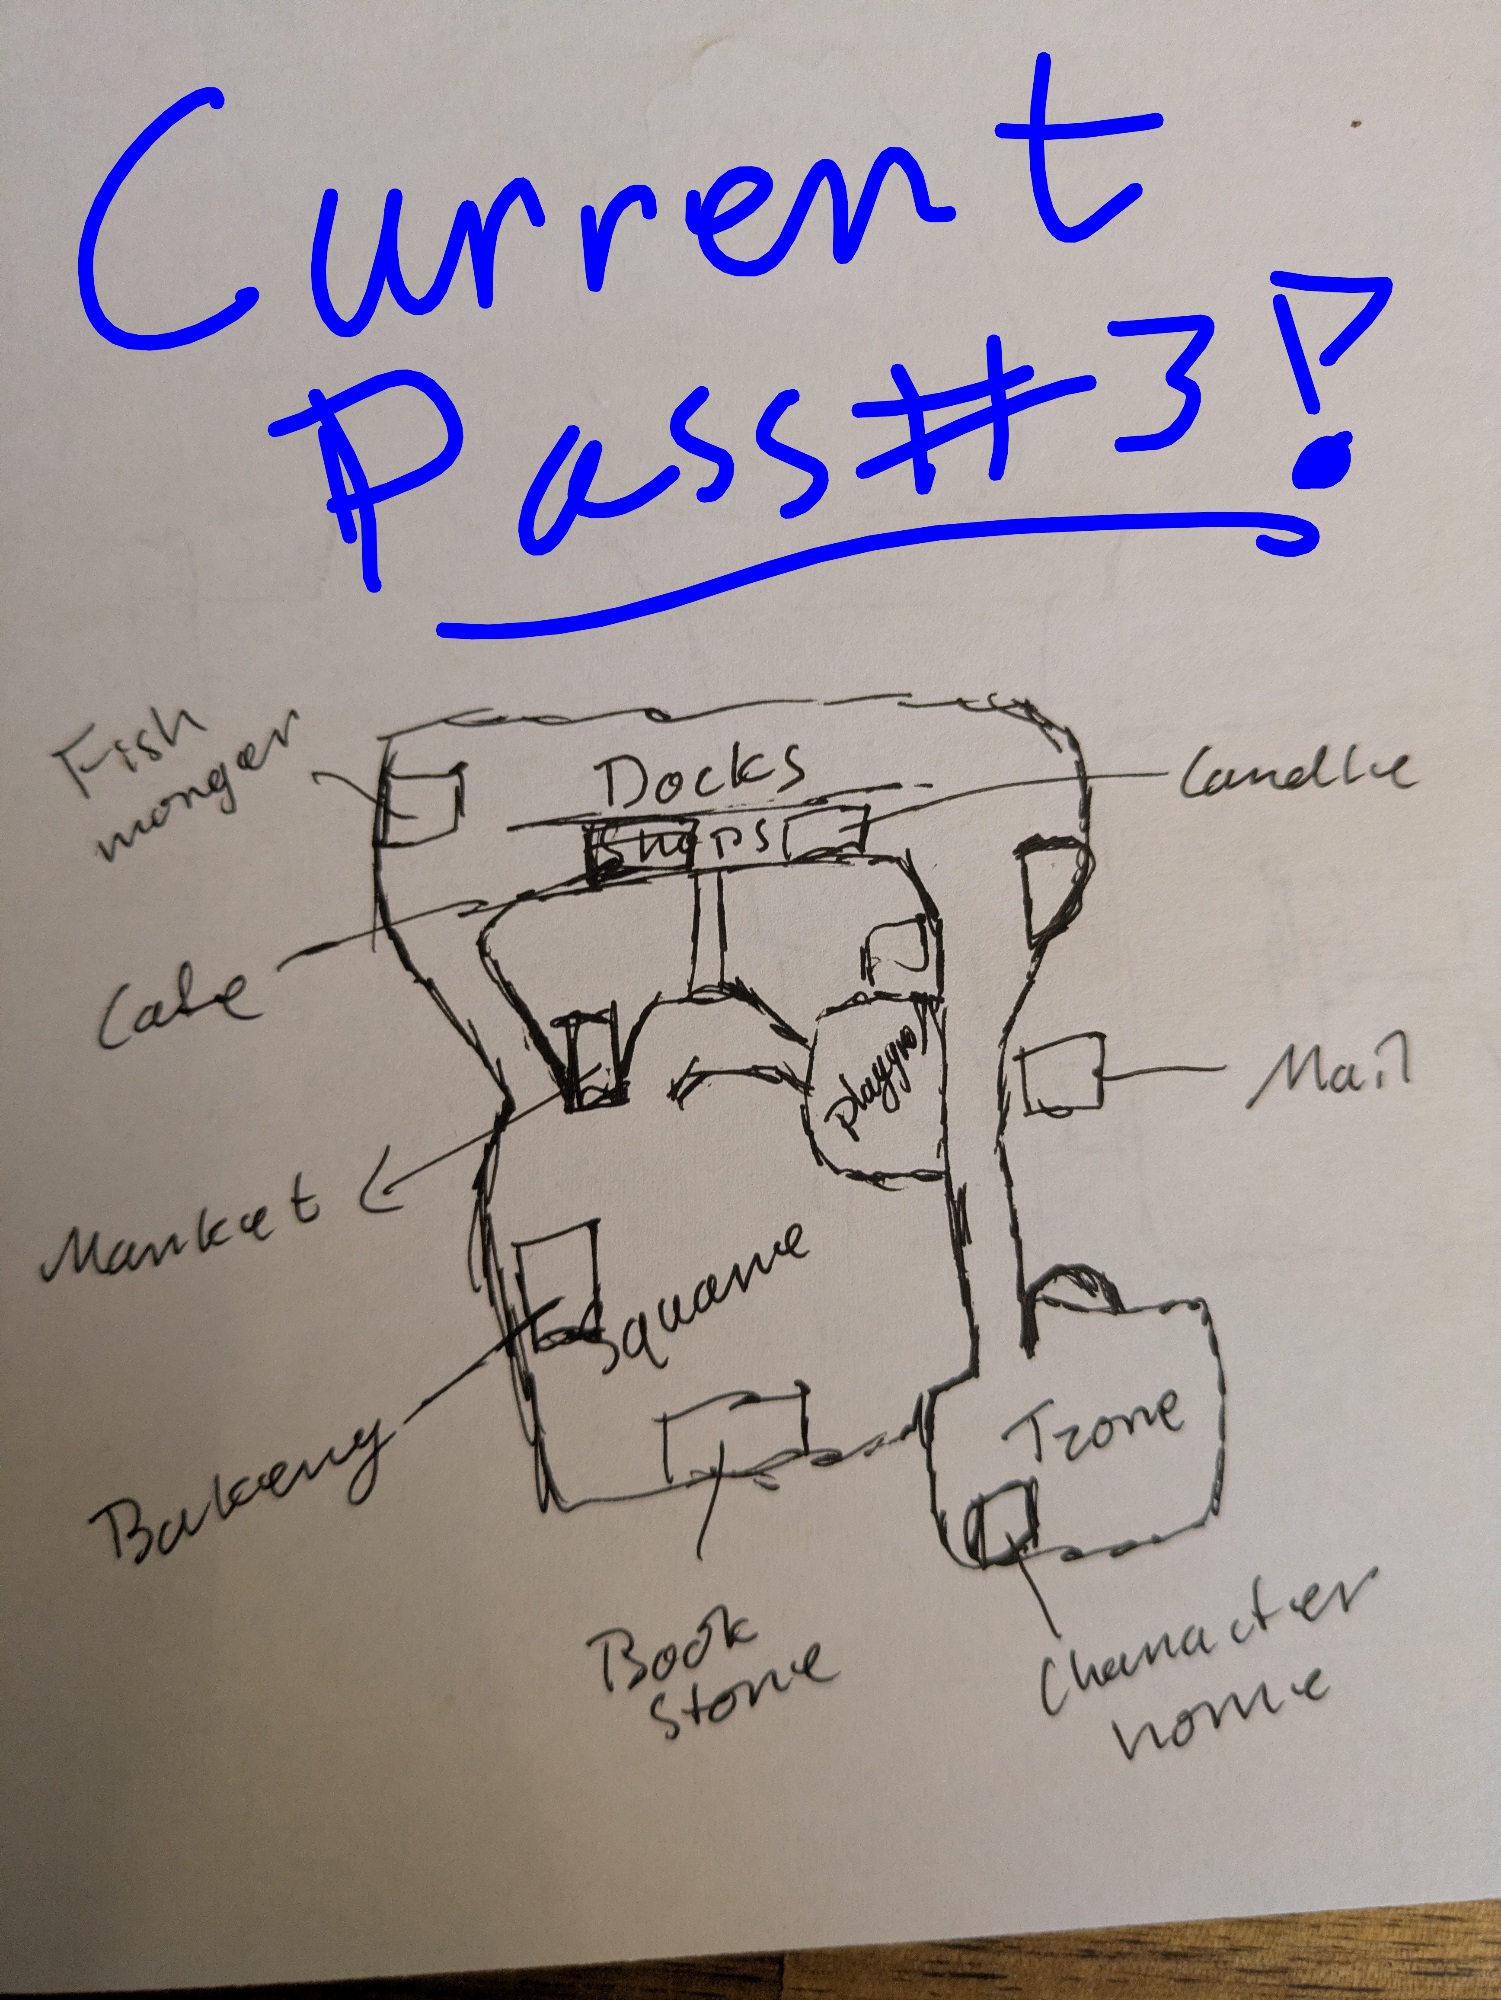 Current
Pass #3!
Fish
monger
Docks
Candle
Shops
Cafe
playgro
Mail
Market
Square
Bakery
Tzone
Book
Store
Character
home